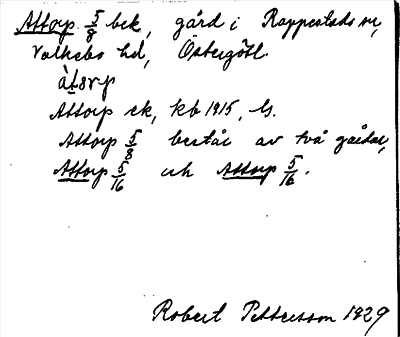 Attorp 5/8 bek, gård i Rappestads sn,
Valkebo hd, Östergötl.
Attorp ek, kb 1915, ls.
Attorp 5/8 består av två gårdar,
Attorp 5/16 och Attorp 5/16.
Robert Pettersson 1929